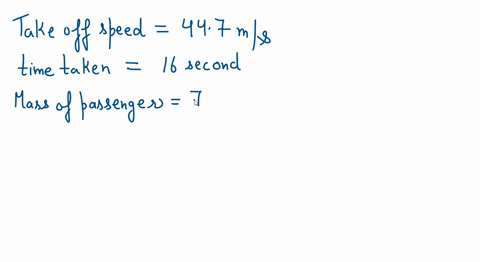 Take off speed = 44.7 m/s
time taken = 16 second
Mass of passenger = 7